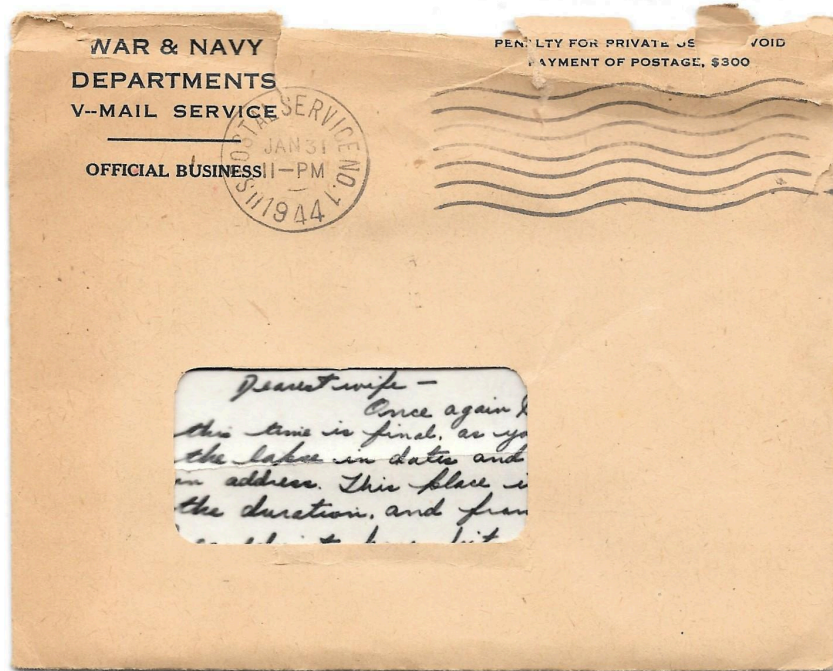 WAR & NAVY
DEPARTMENTS
V--MAIL SERVICE
OFFICIAL BUSINESS
PENALTY FOR PRIVATE US VOID
PAYMENT OF POSTAGE, $300
U.S. POSTAL SERVICE NO. 1
JAN 31
11-PM
1944
Dearest wife -
Once again I
this time is final, as yo
the lapse in dates and
an address. This place i
the duration, and fran